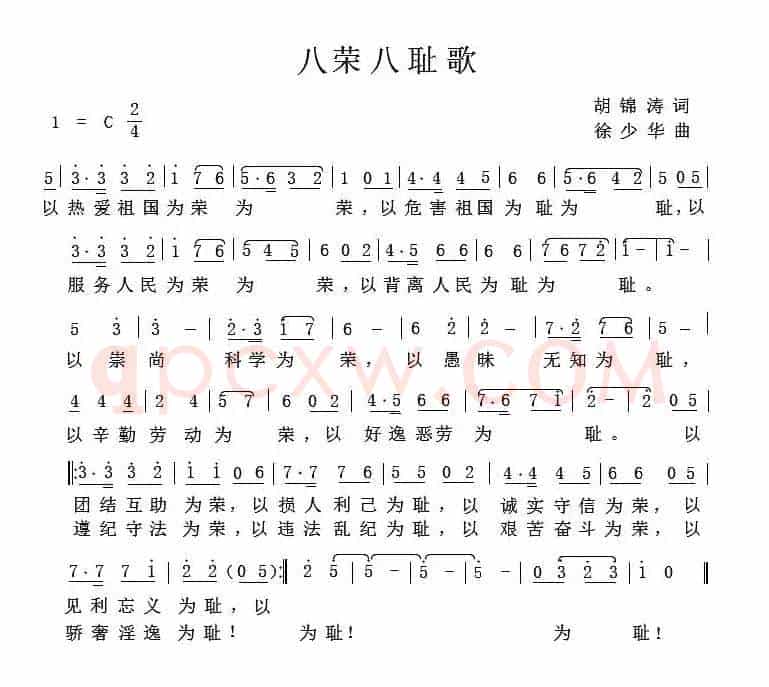 八荣八耻歌
1 = C 2/4
胡锦涛 词
徐少华 曲
5 | 3·3 3 2 | 1 7 6 | 5·6 3 2 | 1 0 1 | 4·4 4 5 | 6 6 | 5·6 4 2 | 5 0 5 |
以热爱祖国为荣 为 荣，以危害祖国为耻为 耻，以
3·3 3 2 | 1 7 6 | 5 4 5 | 6 0 2 | 4·5 6 6 | 7 6 7 2 | 1 - | 1 - |
服务人民为荣 为 荣，以背离人民为耻为 耻。
5 3 | 3 - | 2·3 1 7 | 6 - | 6 2 | 2 - | 7·2 7 6 | 5 - |
以崇尚 科学为 荣，以愚昧 无知为 耻，
4 4 4 2 | 4 | 5 7 | 6 0 2 | 4·5 6 6 | 7·6 7 1 | 2 - | 2 0 5 |
以辛勤劳动为 荣，以 好逸恶劳 为 耻。 以
‖:3·3 3 2 | 1 1 0 6 | 7·7 7 6 | 5 5 0 2 | 4·4 4 5 | 6 6 0 5 |
团结互助 为荣，以损人利己为耻，以 诚实守信为荣，以
遵纪守法 为荣，以违法乱纪为耻，以 艰苦奋斗为荣，以
7·7 7 1 | 2 2 (0 5):‖ 2 5 | 5 - | 5 - | 5 - | 0 3 2 3 | 1 0 ‖
见利忘义 为耻，以
骄奢淫逸 为耻！ 为耻！ 为 耻！
qpcxw.COM